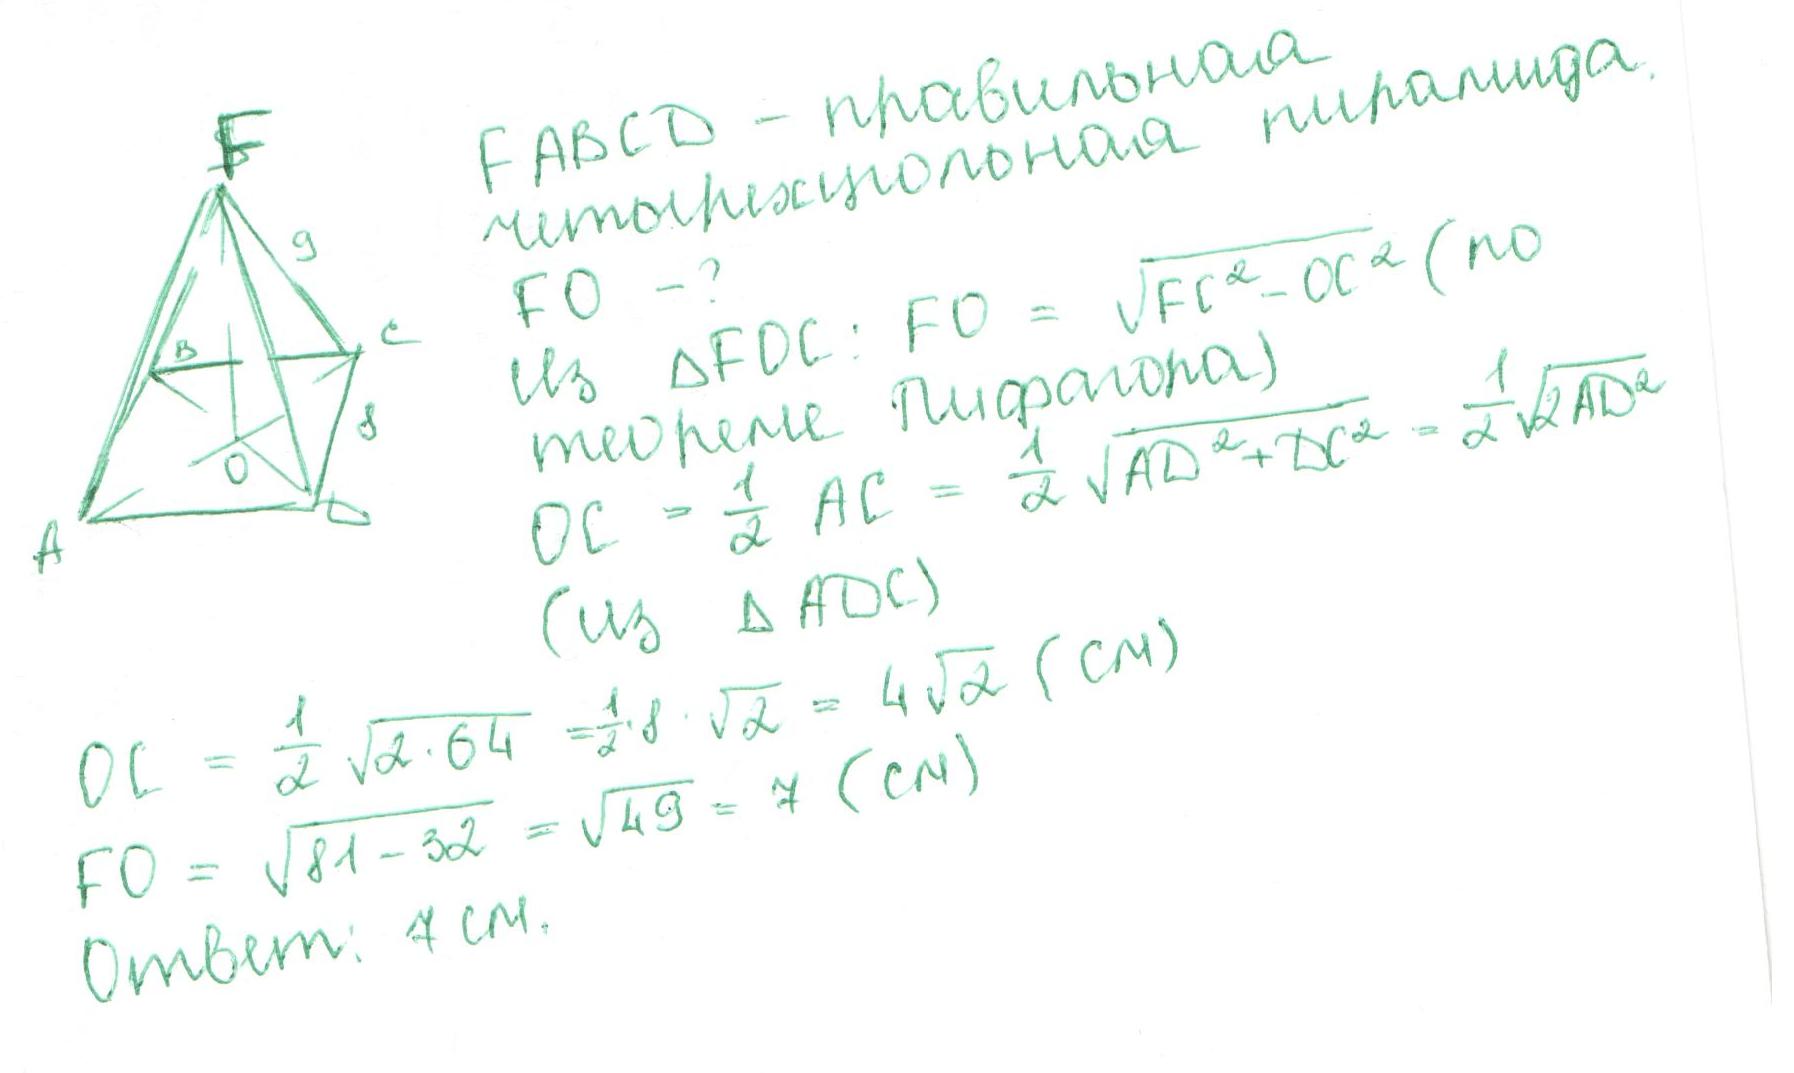 F
9
B
C
8
O
A
D
FABCD - правильная
четырехугольная пирамида.
FO - ?
Из ΔFOC: FO = √(FC² - OC²) (по
теореме Пифагора)
OC = 1/2 AC = 1/2 √(AD² + DC²) = 1/2 √(2AD²)
(из ΔADC)
OC = 1/2 √(2·64) = 1/2·8·√2 = 4√2 (см)
FO = √(81 - 32) = √49 = 7 (см)
Ответ: 7 см.